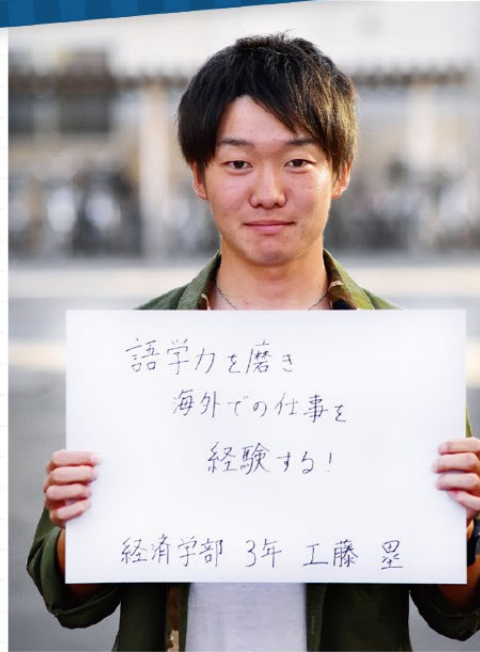 語学力を磨き
海外での仕事を
経験する！
経済学部 3年 工藤 塁